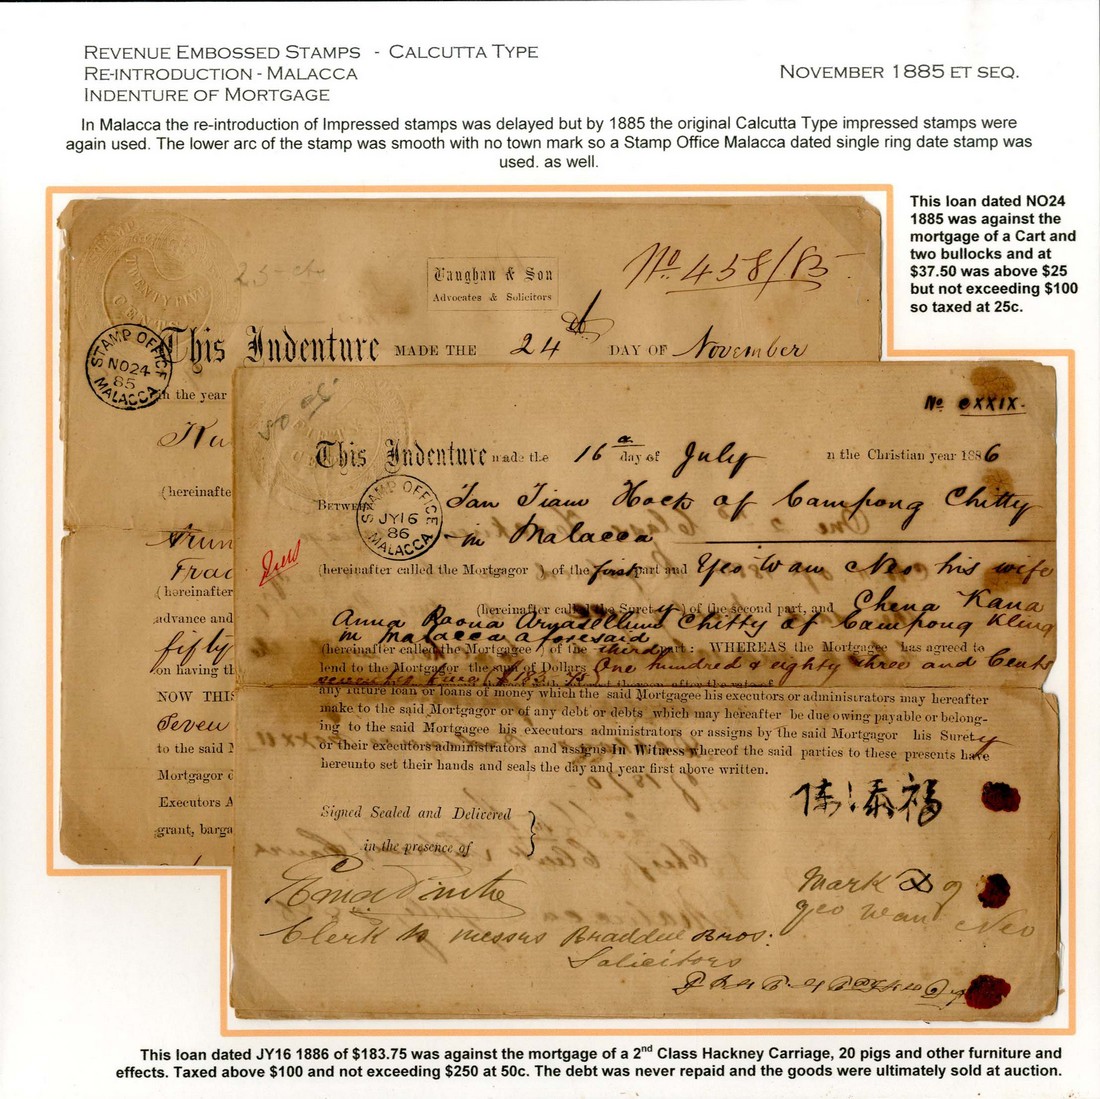 REVENUE EMBOSSED STAMPS - CALCUTTA TYPE
RE-INTRODUCTION - MALACCA
INDENTURE OF MORTGAGE
NOVEMBER 1885 ET SEQ.
In Malacca the re-introduction of Impressed stamps was delayed but by 1885 the original Calcutta Type impressed stamps were
again used. The lower arc of the stamp was smooth with no town mark so a Stamp Office Malacca dated single ring date stamp was
used. as well.
This loan dated NO24
1885 was against the
mortgage of a Cart and
two bullocks and at
$37.50 was above $25
but not exceeding $100
so taxed at 25c.
25 ct
Vaughan & Son
Advocates & Solicitors
No. 458/85
STAMP OFFICE
NO24
85
MALACCA
This Indenture MADE THE 24th DAY OF November
in the year
(hereinafte
Trac
(hereinafter
advance and
fifty
on having th
NOW THIS
Seven
to the said M
Mortgagor o
Executors A
grant, barga
50 cts
No CXXIX.
This Indenture made the 16th day of July in the Christian year 1886
STAMP OFFICE
JY16
86
MALACCA
BETWEEN Tan Tiam Hock of Campong Chitty
in Malacca
(hereinafter called the Mortgagor) of the first part and Yeo Wan Neo his wife
(hereinafter called the Surety) of the second part, and Chena Kana
Anna Raona Chitty of Campong Kling
in Malacca aforesaid
(hereinafter called the Mortgagee) of the third part: WHEREAS the Mortgagee has agreed to
lend to the Mortgagor the sum of Dollars One hundred & eighty three and Cents
seventy five ($183.75)
any future loan or loans of money which the said Mortgagee his executors or administrators may hereafter
make to the said Mortgagor or of any debt or debts which may hereafter be due owing payable or belong-
ing to the said Mortgagee his executors administrators or assigns by the said Mortgagor his Surety
or their executors administrators and assigns In Witness whereof the said parties to these presents have
hereunto set their hands and seals the day and year first above written.
陳添福
Signed Sealed and Delivered
in the presence of
Mark X of
Yeo Wan Neo
Clerk to Messrs Braddell Bros:
Solicitors
This loan dated JY16 1886 of $183.75 was against the mortgage of a 2nd Class Hackney Carriage, 20 pigs and other furniture and
effects. Taxed above $100 and not exceeding $250 at 50c. The debt was never repaid and the goods were ultimately sold at auction.